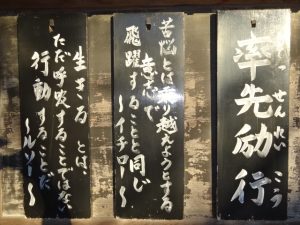 率先励行
そっせんれいこう
苦悩とは乗り越えようとする
意志で
飛躍することと同じ
〜イチロー〜
生きるとは、
ただ呼吸することではない
行動することだ
〜ルソー〜